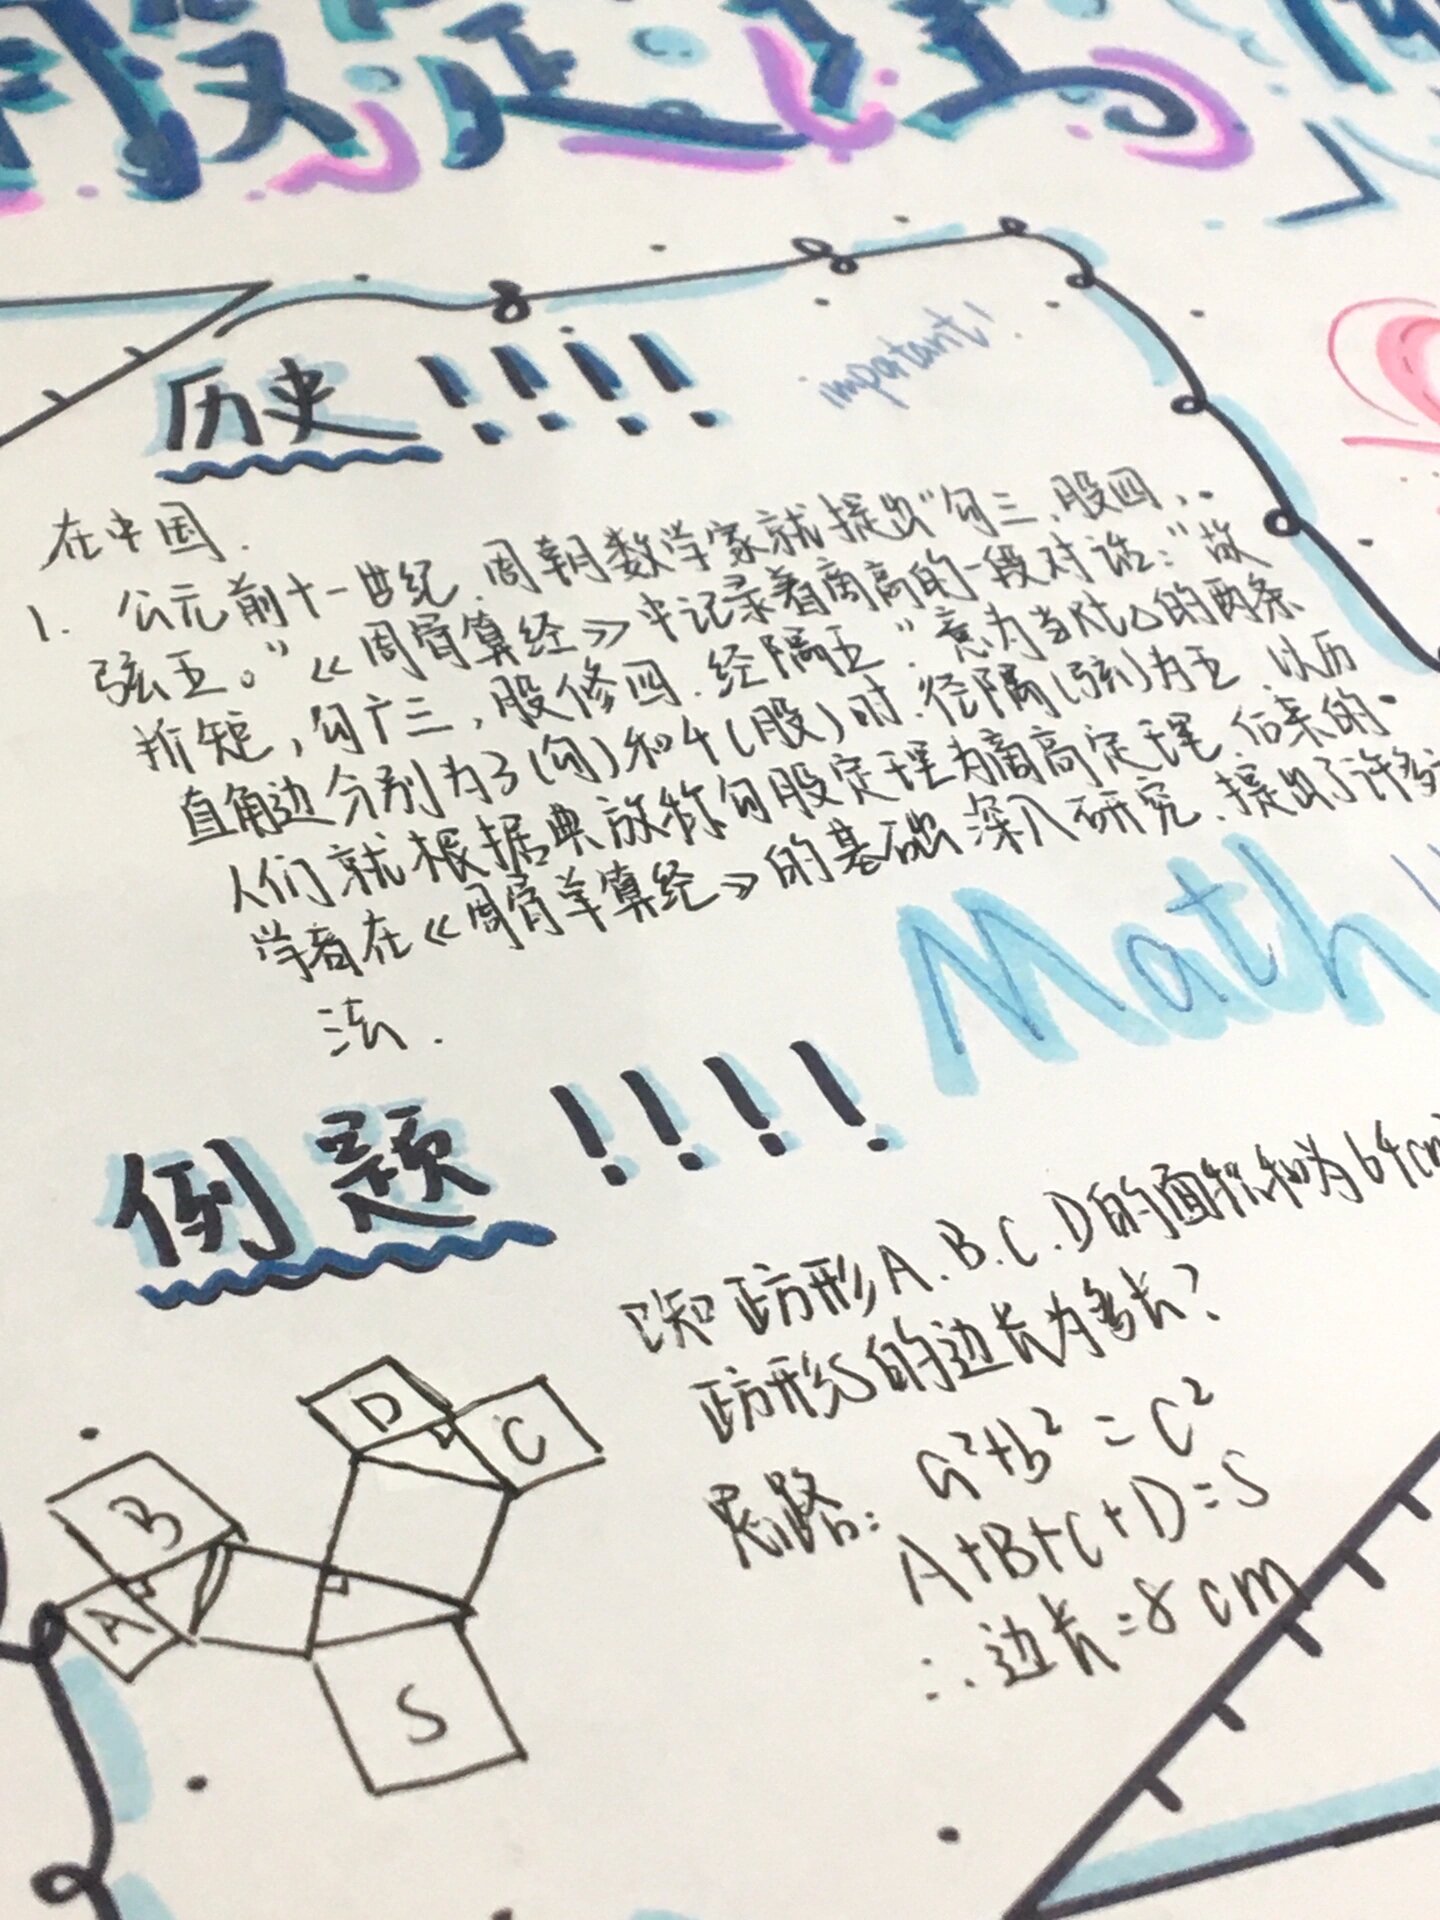 股定理
历史！！！！
important!
在中国.
1. 公元前十一世纪.周朝数学家就提出“勾三、股四、
弦五。”《周髀算经》中记录着商高的一段对话：“故
折矩，勾广三，股修四.经隅五”.意为当Rt△的两条
直角边分别为3(勾)和4(股)时.径隅(弦)为五.以历
人们就根据典故称勾股定理为商高定理.后来的
学者在《周髀算经》的基础深入研究.提出了许多
法.
Math
例题！！！！
已知正方形A.B.C.D的面积和为64cm
正方形S的边长为多长？
思路：a²+b²=c²
A+B+C+D=S
∴边长=8cm
D
C
B
A
S